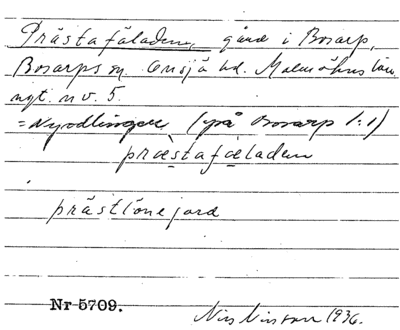 Prästafäladen, gård i Bosarp,
Bosarps sn. Onsjö hd. Malmöhus län
nyt. nv. 5.
= Nyodlingen (på Bosarp 1:1)
præstafæladen
prästlönejord
Nr 5709.
Nils Nilsson 1936.